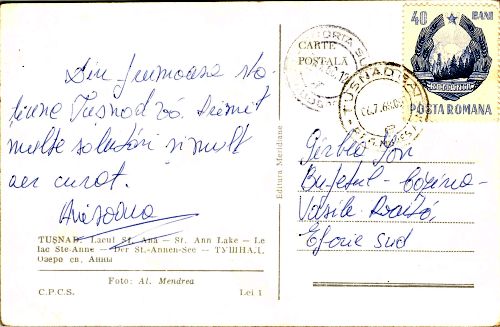 40 BANI
POSTA ROMANA
CARTE
POȘTALĂ
TUȘNAD
Din frumoasa sta-
țiune Tușnad vă trimit
multe salutări și mult
aer curat.
Gîrbea Ion
Bufetul
Vasile Roaită
Eforie Sud
Editura Meridiane
TUȘNAD. Lacul Sf. Ana — St. Ann Lake — Le
lac Ste-Anne — Der St.-Annen-See — ТУШНАД.
Озеро св. Анны
Foto: Al. Mendrea
C.P.C.S. Lei 1